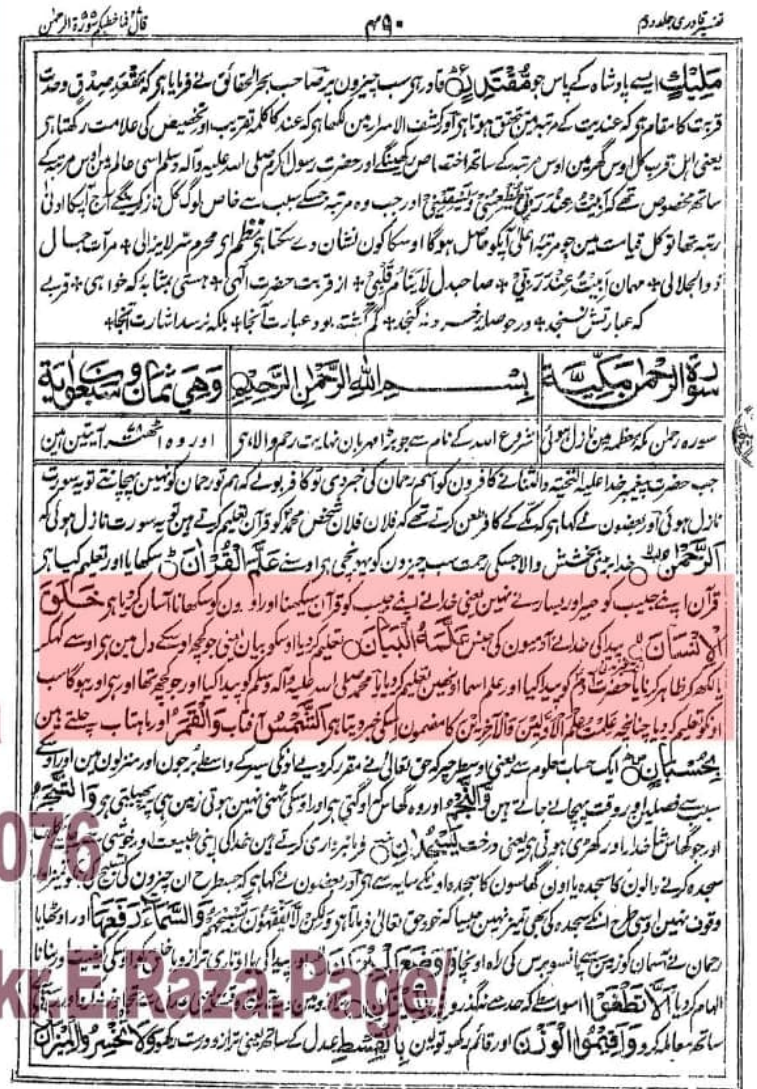 تفسیر قادری جلد دوم ۴۹۰ قال فما خطبکم سورۃ الرحمٰن
مَلِیْكٍ ایسے بادشاہ کے پاس جو مُقْتَدِرٍ قادر ہی سب چیزون پر صاحب بحر الحقائق نے فرمایا ہر کہ مقعد صدق وحدت
قربت کا مقام ہی کہ عندیت کے مرتبہ مین تحقق ہوتا ہی اور کشف الاسرار مین لکھا ہی کہ عند کا کلمہ تقریب اور تخصیص کی علامت رکھتا ہی
یعنی اہل قرب کل اوس گھر مین اوس مرتبہ کے ساتھ اختصاص رکھینگے اور حضرت رسول اکرم صلی اللہ علیہ وآلہ وسلم اسی عالم مین اوس مرتبہ کے
ساتھ مخصوص تھے کہ اَبِیْتُ عِنْدَ رَبِّیْ یُطْعِمُنِیْ وَیَسْقِیْنِیْ اور جب وہ مرتبہ جسکے سبب سے خاص لوگ کل ناز کرینگے آج آپکا ادنیٰ
رتبہ تھا تو کل قیامت مین جو مرتبۂ اعلیٰ آپکو حاصل ہوگا اوسکا کون نشان دے سکتا ہی نظم ای محرم سر لایزالی + مرآت جمال
ذوالجلالی + مہمان اَبِیْتُ عِنْدَ رَبِّیْ + صاحبدل لَایَنَامُ قَلْبِیْ + از قربت حضرت الٰہی + ہستی بمثابۂ کہ خواہی + قربے
کہ عبارتش نسنجد + در حوصلۂ خرد نہ گنجد + گم گشتہ بود عبارت آنجا + بلکہ نرسد اشارت آنجا +
سُوْرَۃُ الرَّحْمٰنِ مَکِّیَّۃٌ بِسْمِ اللّٰہِ الرَّحْمٰنِ الرَّحِیْمِ وَهِیَ ثَمَانٌ وَّسَبْعُوْنَ اٰیَۃً
سورہ رحمٰن مکہ معظمہ مین نازل ہوئی شروع اللہ کے نام سے جو بڑا مہربان نہایت رحم والا ہی اور وہ اٹھتر آیتین ہین
جب حضرت پیغمبر خدا علیہ التحیۃ والثنا نے کافرون کو اسم رحمان کی خبر دی تو کافر بولے کہ ہم تو رحمان کو نہین پہچانتے تو یہ سورت
نازل ہوئی اور بعضون نے کہا ہی کہ مکے کے کافر طعن کرتے تھے کہ فلان فلان شخص محمد کو قرآن تعلیم کرتے ہین تو یہ سورت نازل ہوئی کہ
اَلرَّحْمٰنُ خدا بڑی بخشش والا جسکی رحمت سب چیزون کو پہونچی ہی اوسنے عَلَّمَ الْقُرْاٰنَ سکھایا اور تعلیم کیا ہی
قرآن اپنے حبیب کو جبر اور یسار نے نہین یعنی خدا نے اپنے حبیب کو قرآن سیکھنا اور اورون کو سکھانا آسان کر دیا ہی خَلَقَ
الْاِنْسَانَ پیدا کی خدا نے آدمیون کی جنس عَلَّمَهُ الْبَیَانَ تعلیم کر دیا اوسکو بیان یعنی جو کچھ اوسکے دل مین ہی اوسے کہکر
یا لکھکر ظاہر کرنا یا حضرت آدم کو پیدا کیا اور علم اسما اونھین تعلیم کر دیا یا محمد صلی اللہ علیہ وآلہ وسلم کو پیدا کیا اور جو کچھ تھا اور ہی اور ہوگا سب
اونکو تعلیم کر دیا چنانچہ عُلِّمْتُ عِلْمَ الْاَوَّلِیْنَ وَالْاٰخِرِیْنَ کا مضمون اسکی خبر دیتا ہی اَلشَّمْسُ آفتاب وَالْقَمَرُ اور ماہتاب چلتے ہین
بِحُسْبَانٍ ایک حساب معلوم سے یعنی اوسطرح پر کہ حق تعالیٰ نے مقرر کر دیے اونکی سیر کے واسطے برجون اور منزلون مین اور اوسکے
سبب سے فصلین اور وقت پہچانے جاتے ہین وَّالنَّجْمُ اور وہ گھاس کہ اوگتی ہی اور اوسکی ٹہنی نہین ہوتی زمین ہی پر پھیلتی ہی وَالشَّجَرُ
اور جو گھاس شاخدار اور کھڑی ہوتی ہی یعنی درخت یَسْجُدٰنِ فرمانبرداری کرتے ہین خدا کی اپنی طبیعت اور خوشی سے
سجدہ کرنے والون کا سجدہ یا اون گھاسون کا سجدہ اونکے سایہ سے ہی اور بعضون نے کہا ہی کہ جسطرح ان چیزون کی تسبیح
وقوف نہین اوسی طرح انکے سجدہ کی بھی تمیز نہین جیسا کہ خود حق تعالیٰ فرماتا ہی وَلٰکِنْ لَّا تَفْقَهُوْنَ تَسْبِیْحَهُمْ وَالسَّمَآءَ رَفَعَهَا اور اوٹھایا
رحمان نے آسمان کو زمین سے پانسو برس کی راہ اونچا وَوَضَعَ الْمِیْزَانَ اور پیدا کی یا اوتاری ترازو یا خلق کو اوسکی کیفیت اور بنانا
الہام کر دیا اَلَّا تَطْغَوْا اسواسطے کہ حد سے نہ گذرو
ساتھ معاملہ کرو وَاَقِیْمُوا الْوَزْنَ اور قائم رکھو تولین بِالْقِسْطِ عدل کے ساتھ یعنی ترازو درست رکھو وَلَا تُخْسِرُوا الْمِیْزَانَ
076
kr.E.Raza.Page/